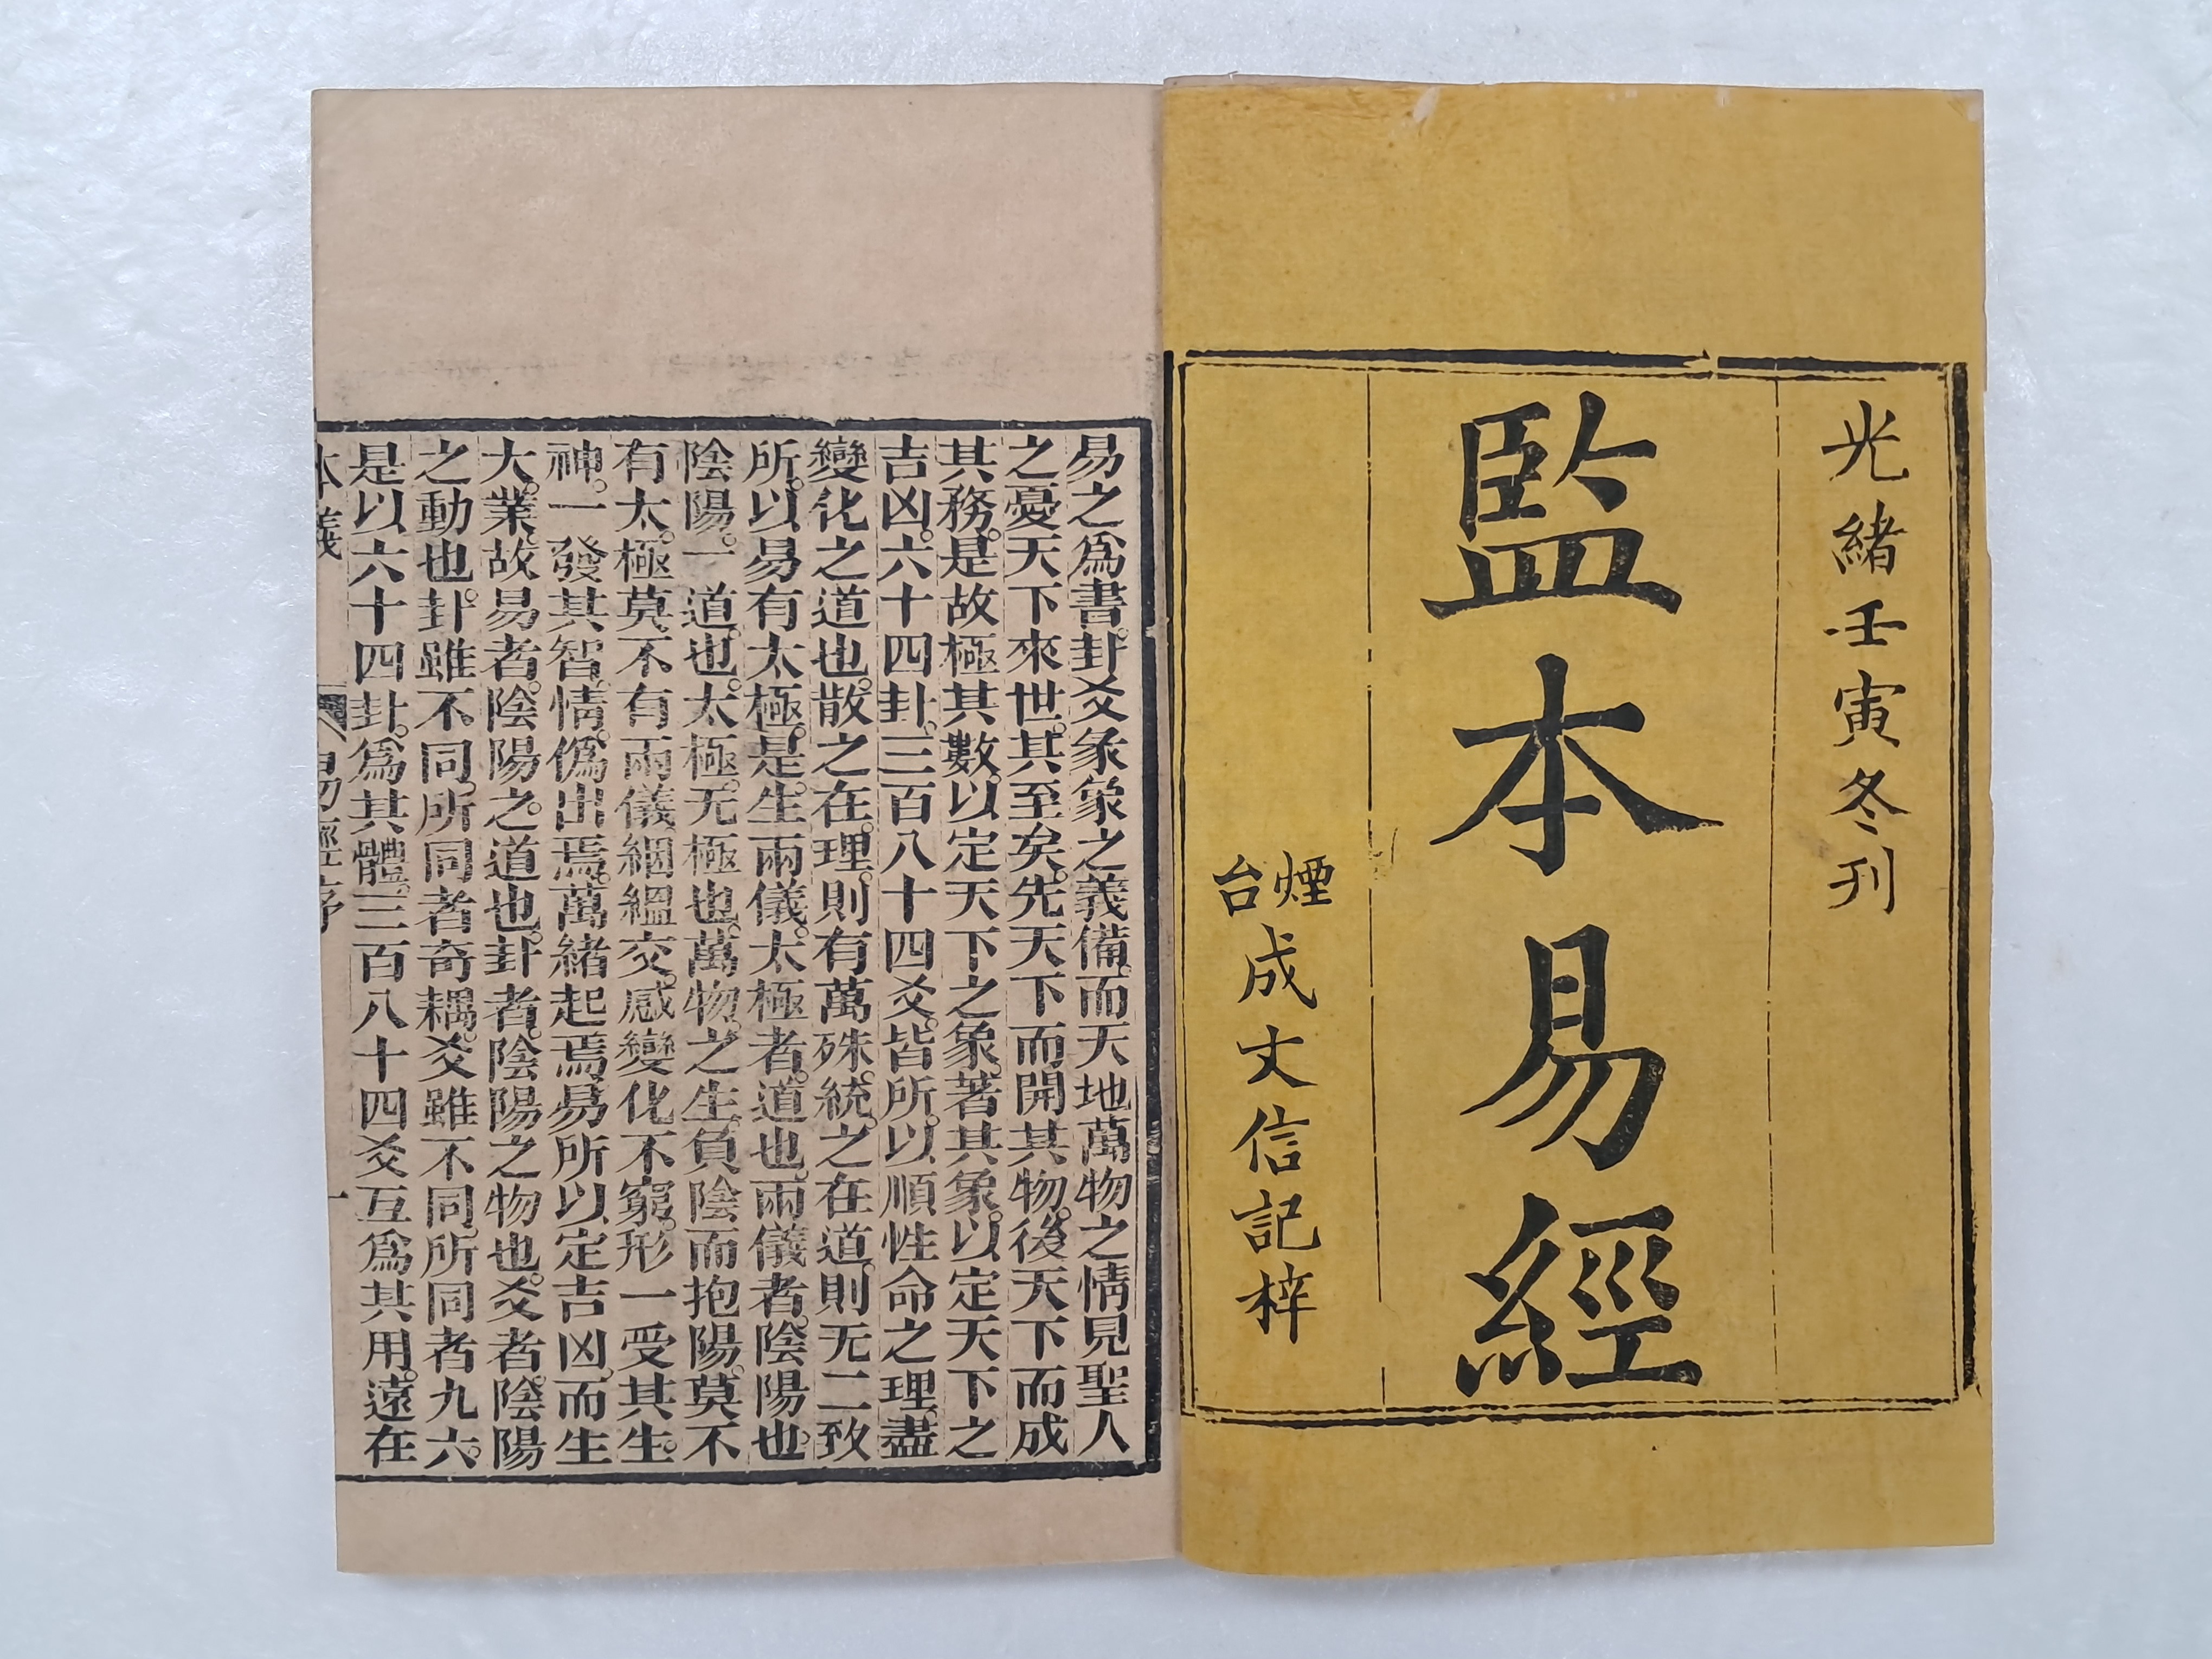 光緒壬寅冬刊
監本易經
煙台成文信記梓
易之爲書。卦爻彖象之義備。而天地萬物之情見聖人
之憂天下來世。其至矣。先天下而開其物。後天下而成
其務。是故極其數。以定天下之象。著其象。以定天下之
吉凶。六十四卦。三百八十四爻。皆所以順性命之理。盡
變化之道也。散之在理。則有萬殊。統之在道。則无二致
所以易有太極。是生兩儀。太極者。道也。兩儀者。陰陽也
陰陽。一道也。太極。无極也。萬物之生。負陰而抱陽。莫不
有太極。莫不有兩儀。絪縕交感。變化不窮。形一受其生。
神。一發其智。情僞出焉。萬緒起焉。易所以定吉凶。而生
大業。故易者。陰陽之道也。卦者。陰陽之物也。爻者。陰陽
之動也。卦雖不同。所同者奇耦。爻雖不同。所同者九六。
是以六十四卦。爲其體。三百八十四爻互爲其用。遠在
本義 易經序 一